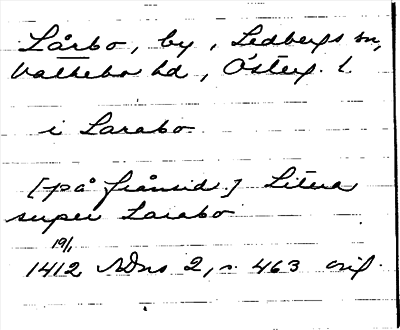 Lårbo, by, Ledbergs sn,
Valkebo hd, Österg. l.
i Larabo
[på frånsid.] Litera
super Larabo
19/1
1412 SDns 2, n. 463 orig.